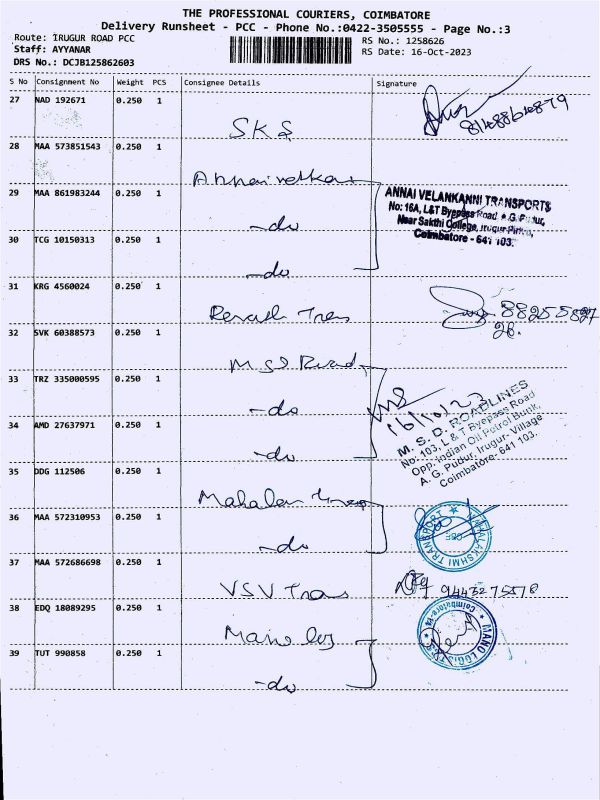 THE PROFESSIONAL COURIERS, COIMBATORE
Delivery Runsheet - PCC - Phone No.:0422-3505555 - Page No.:3
Route: IRUGUR ROAD PCC
RS No.: 1258626
Staff: AYYANAR
RS Date: 16-Oct-2023
DRS No.: DCJB125862603
S No Consignment No Weight PCS Consignee Details Signature
27 NAD 192671 0.250 1
SKS
8148864879
28 MAA 573851543 0.250 1
Annai velkan
29 MAA 861983244 0.250 1
-do
ANNAI VELANKANNI TRANSPORTS
No: 16A, L&T Byepass Road, A.G. Pudur,
Near Sakthi College, Irugur Pirivu,
Coimbatore - 641 103.
30 TCG 10150313 0.250 1
-do
31 KRG 4560024 0.250 1
Trans
32 SVK 60388573 0.250 1
MSD Road
33 TRZ 335000595 0.250 1
-do
16/10/23
M. S. D. ROADLINES
No: 103, L & T Byepass Road
Opp. Indian Oil Petrol Bunk,
A. G. Pudur, Irugur- Village
Coimbatore- 641 103.
34 AMD 27637971 0.250 1
-do
35 DDG 112506 0.250 1
36 MAA 572310953 0.250 1
-do
TRANSPORT
CBE
37 MAA 572686698 0.250 1
VSV Trans
9443275576
38 EDQ 18089295 0.250 1
Mano log
MANO LOGISTICS
Coimbatore
39 TUT 990858 0.250 1
-do